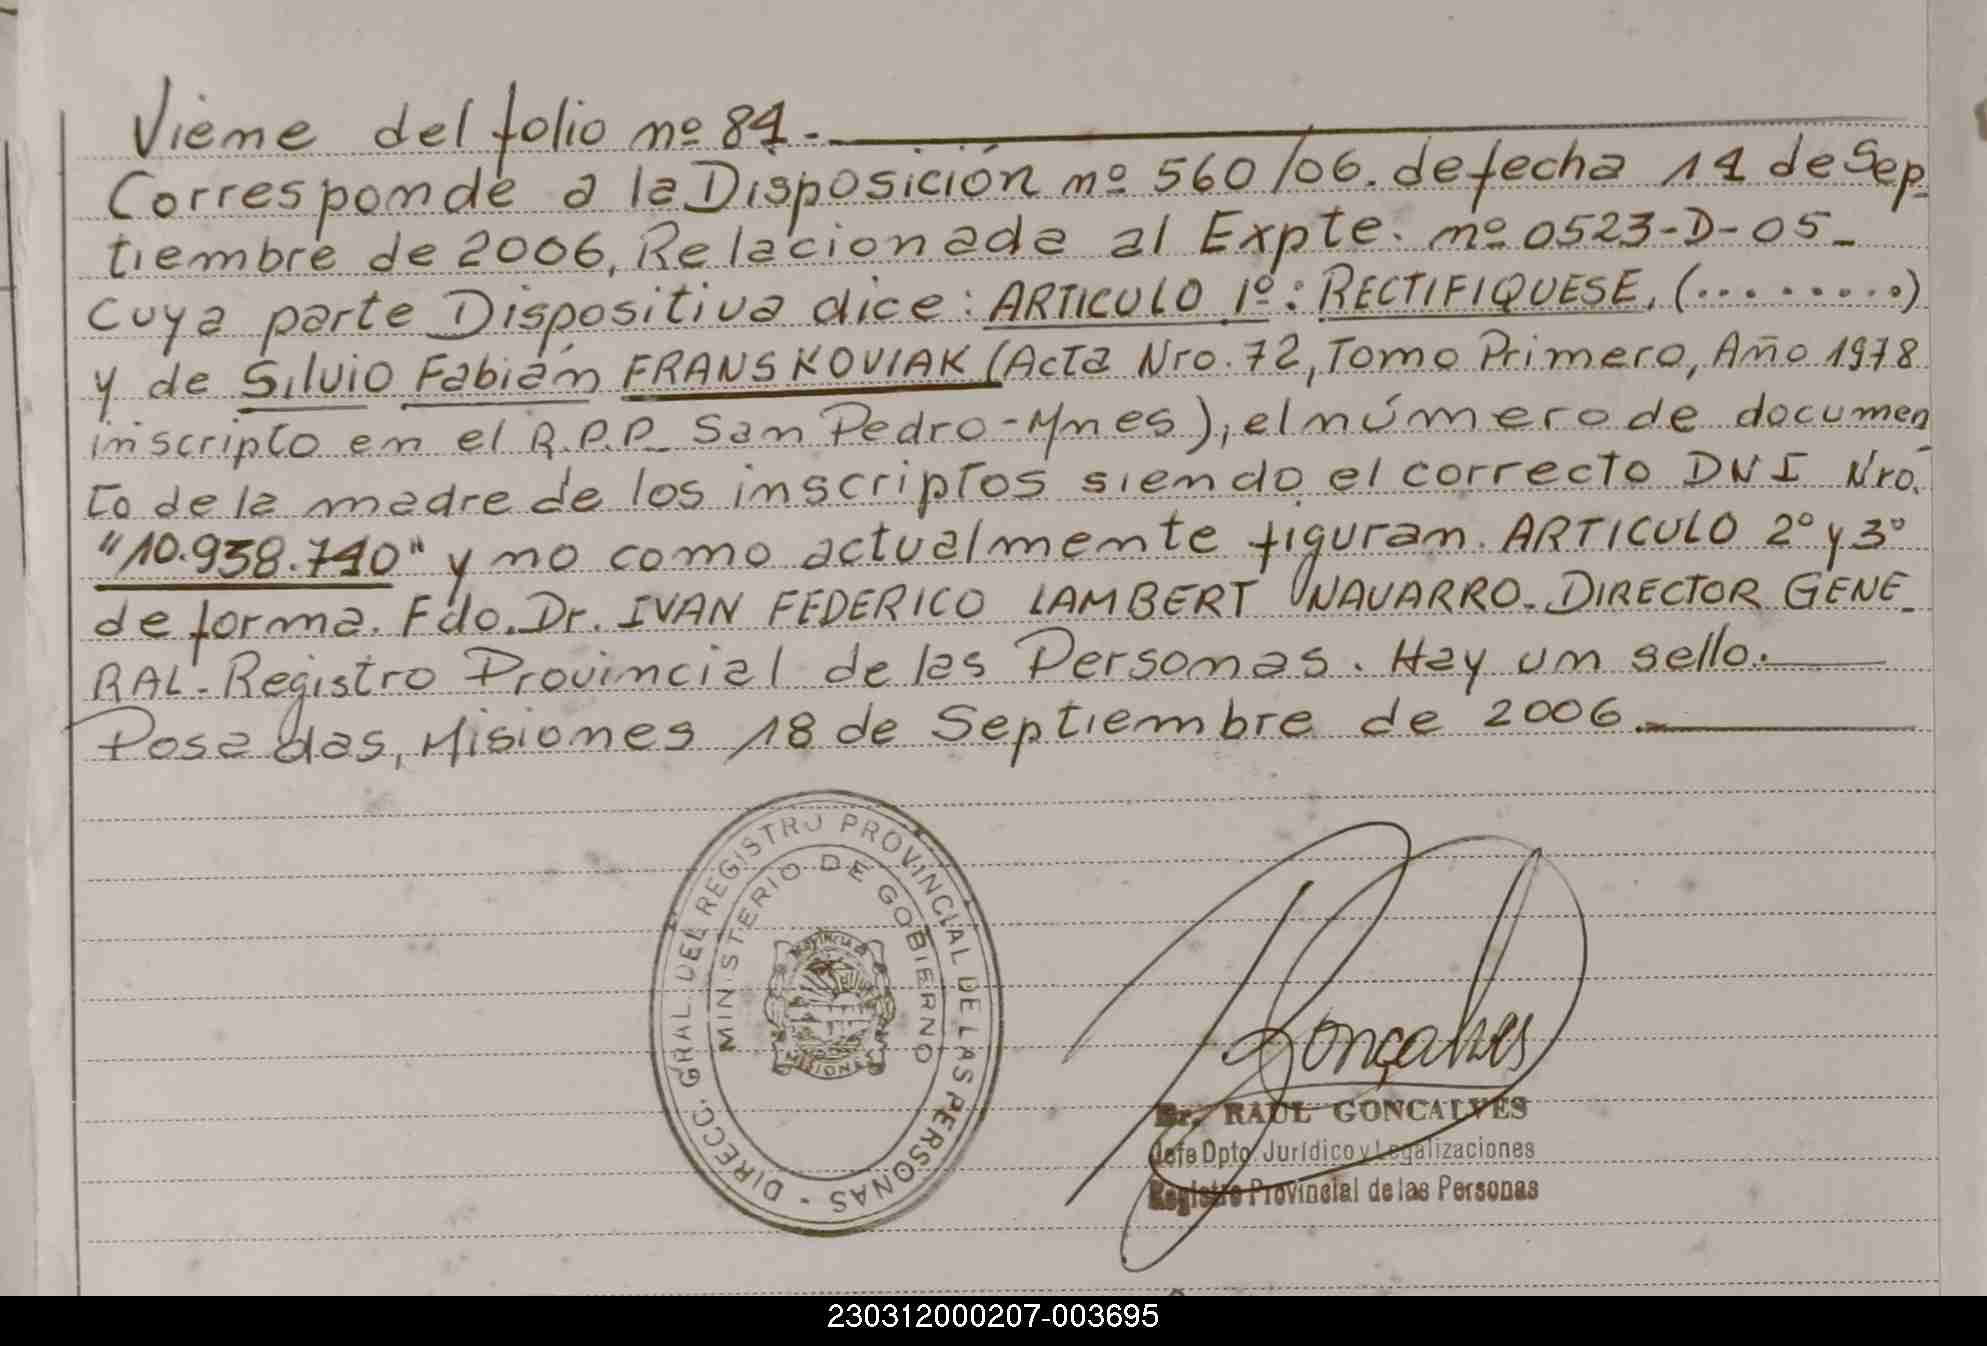 Viene del folio nº 84.
Corresponde a la Disposición nº 560/06. de fecha 14 de Sep-
tiembre de 2006, Relacionada al Expte. nº 0523-D-05_
cuya parte Dispositiva dice: ARTICULO 1º: RECTIFIQUESE, (.........)
y de Silvio Fabián FRANSKOVIAK (Acta Nro. 72, Tomo Primero, Año 1978
inscripto en el R.P.P_ San Pedro-Mnes), el número de documen
to de la madre de los inscriptos siendo el correcto DNI Nro.
"10.938.740" y no como actualmente figuran. ARTICULO 2º y 3º
de forma. Fdo. Dr. IVAN FEDERICO LAMBERT NAVARRO. DIRECTOR GENE_
RAL. Registro Provincial de las Personas. Hay un sello.
Posadas, Misiones 18 de Septiembre de 2006.
DIRECC. GRAL. DEL REGISTRO PROVINCIAL DE LAS PERSONAS -
MINISTERIO DE GOBIERNO
Provincia de
MISIONES
Gonçalves
Dr. RAUL GONCALVES
Jefe Dpto. Jurídico y Legalizaciones
Registro Provincial de las Personas
230312000207-003695